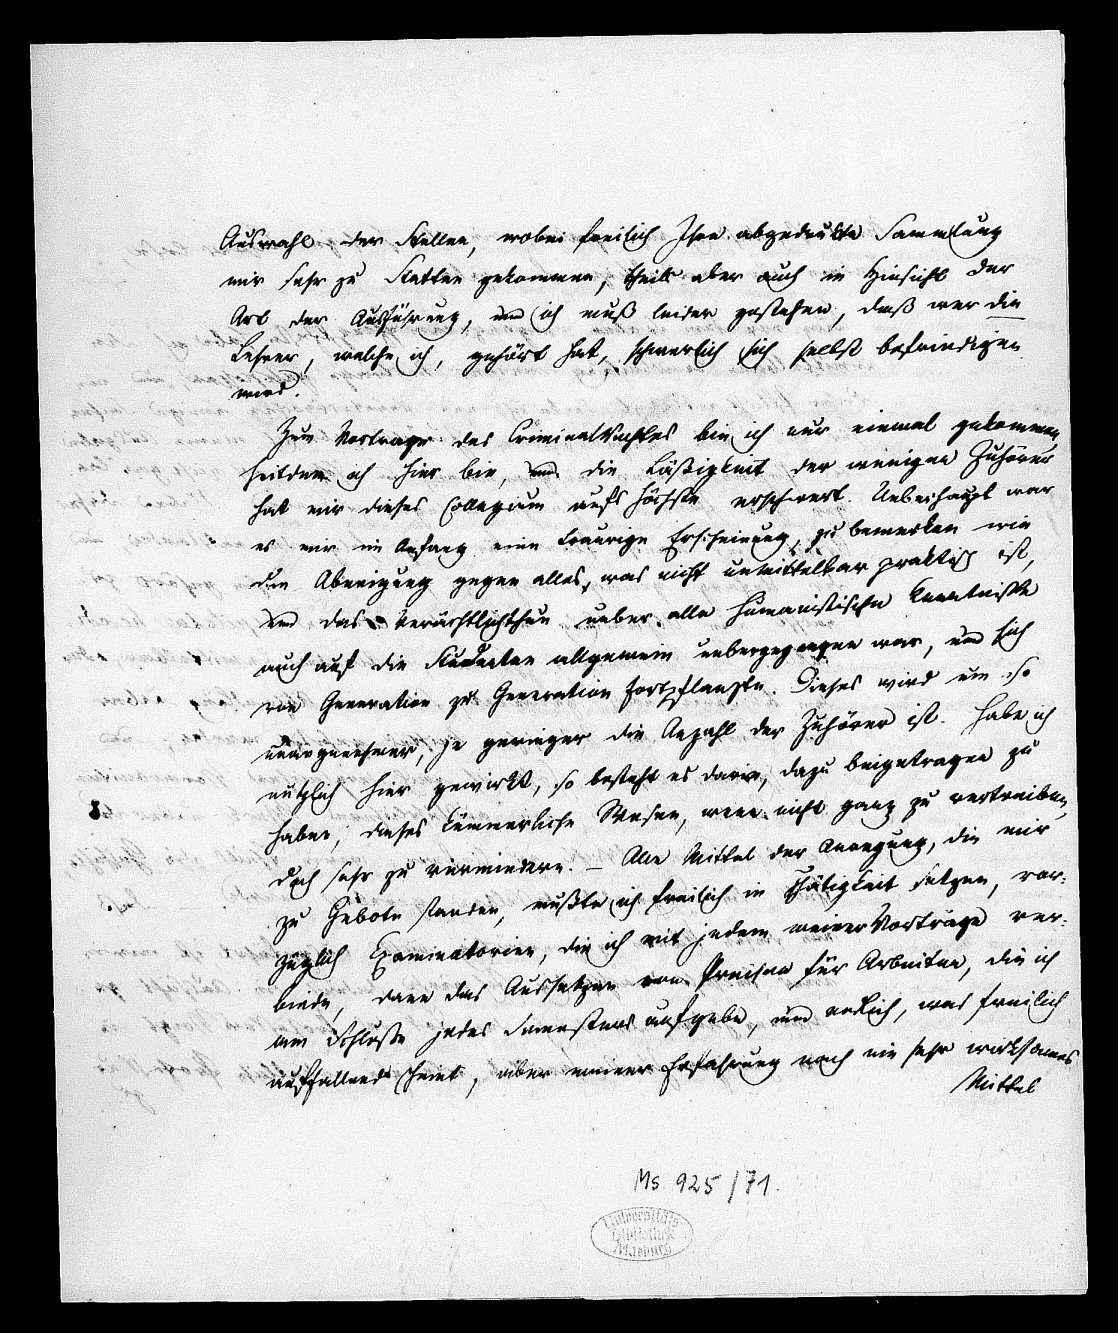 Auswahl der Stellen, wobei freilich Ihre abgedruckte Sammlung
mir sehr zu Statten gekommen, theils aber auch in Hinsicht der
Art der Ausführung, und ich muß leider gestehen, daß wer die
Lehrer, welche ich, gehört hat, schwerlich sich selbst befriedigen
wird.
Zum Vortrage des Criminalrechtes bin ich nur einmal gekommen,
seitdem ich hier bin, und die Läßigkeit der wenigen Zuhörer
hat mir dieses Collegium aufs höchste erschwert. Ueberhaupt war
es mir im Anfang eine traurige Erscheinung, zu bemerken wie
die Abneigung gegen alles, was nicht unmittelbar praktisch ist,
und das Verächtlichthun ueber alle humanistischen Kenntniße
auch auf die Studenten allgemein uebergegangen war, und sich
von Generation zu Generation fortpflanzte. Dieses wird um so
unangenehmer, je geringer die Anzahl der Zuhörer ist. Habe ich
nützlich hier gewirkt, so besteht es darin, dazu beigetragen zu
haben, dieses kümmerliche Wesen, wenn nicht ganz zu vertreiben,
doch sehr zu vermindern. – Alle Mittel der Anregung, die mir
zu Gebote standen, mußte ich freilich in Thätigkeit setzen, vor-
züglich Examinatorien, die ich mit jedem meiner Vorträge ver-
binde, dann das Aussetzen von Preisen für Arbeiten, die ich
am Schluße jedes Semesters aufgebe, und endlich, was freilich
auffallend scheint, aber meiner Erfahrung nach ein sehr wirksames
Mittel
Ms 925/71.
Universitäts
Bibliothek
Marburg